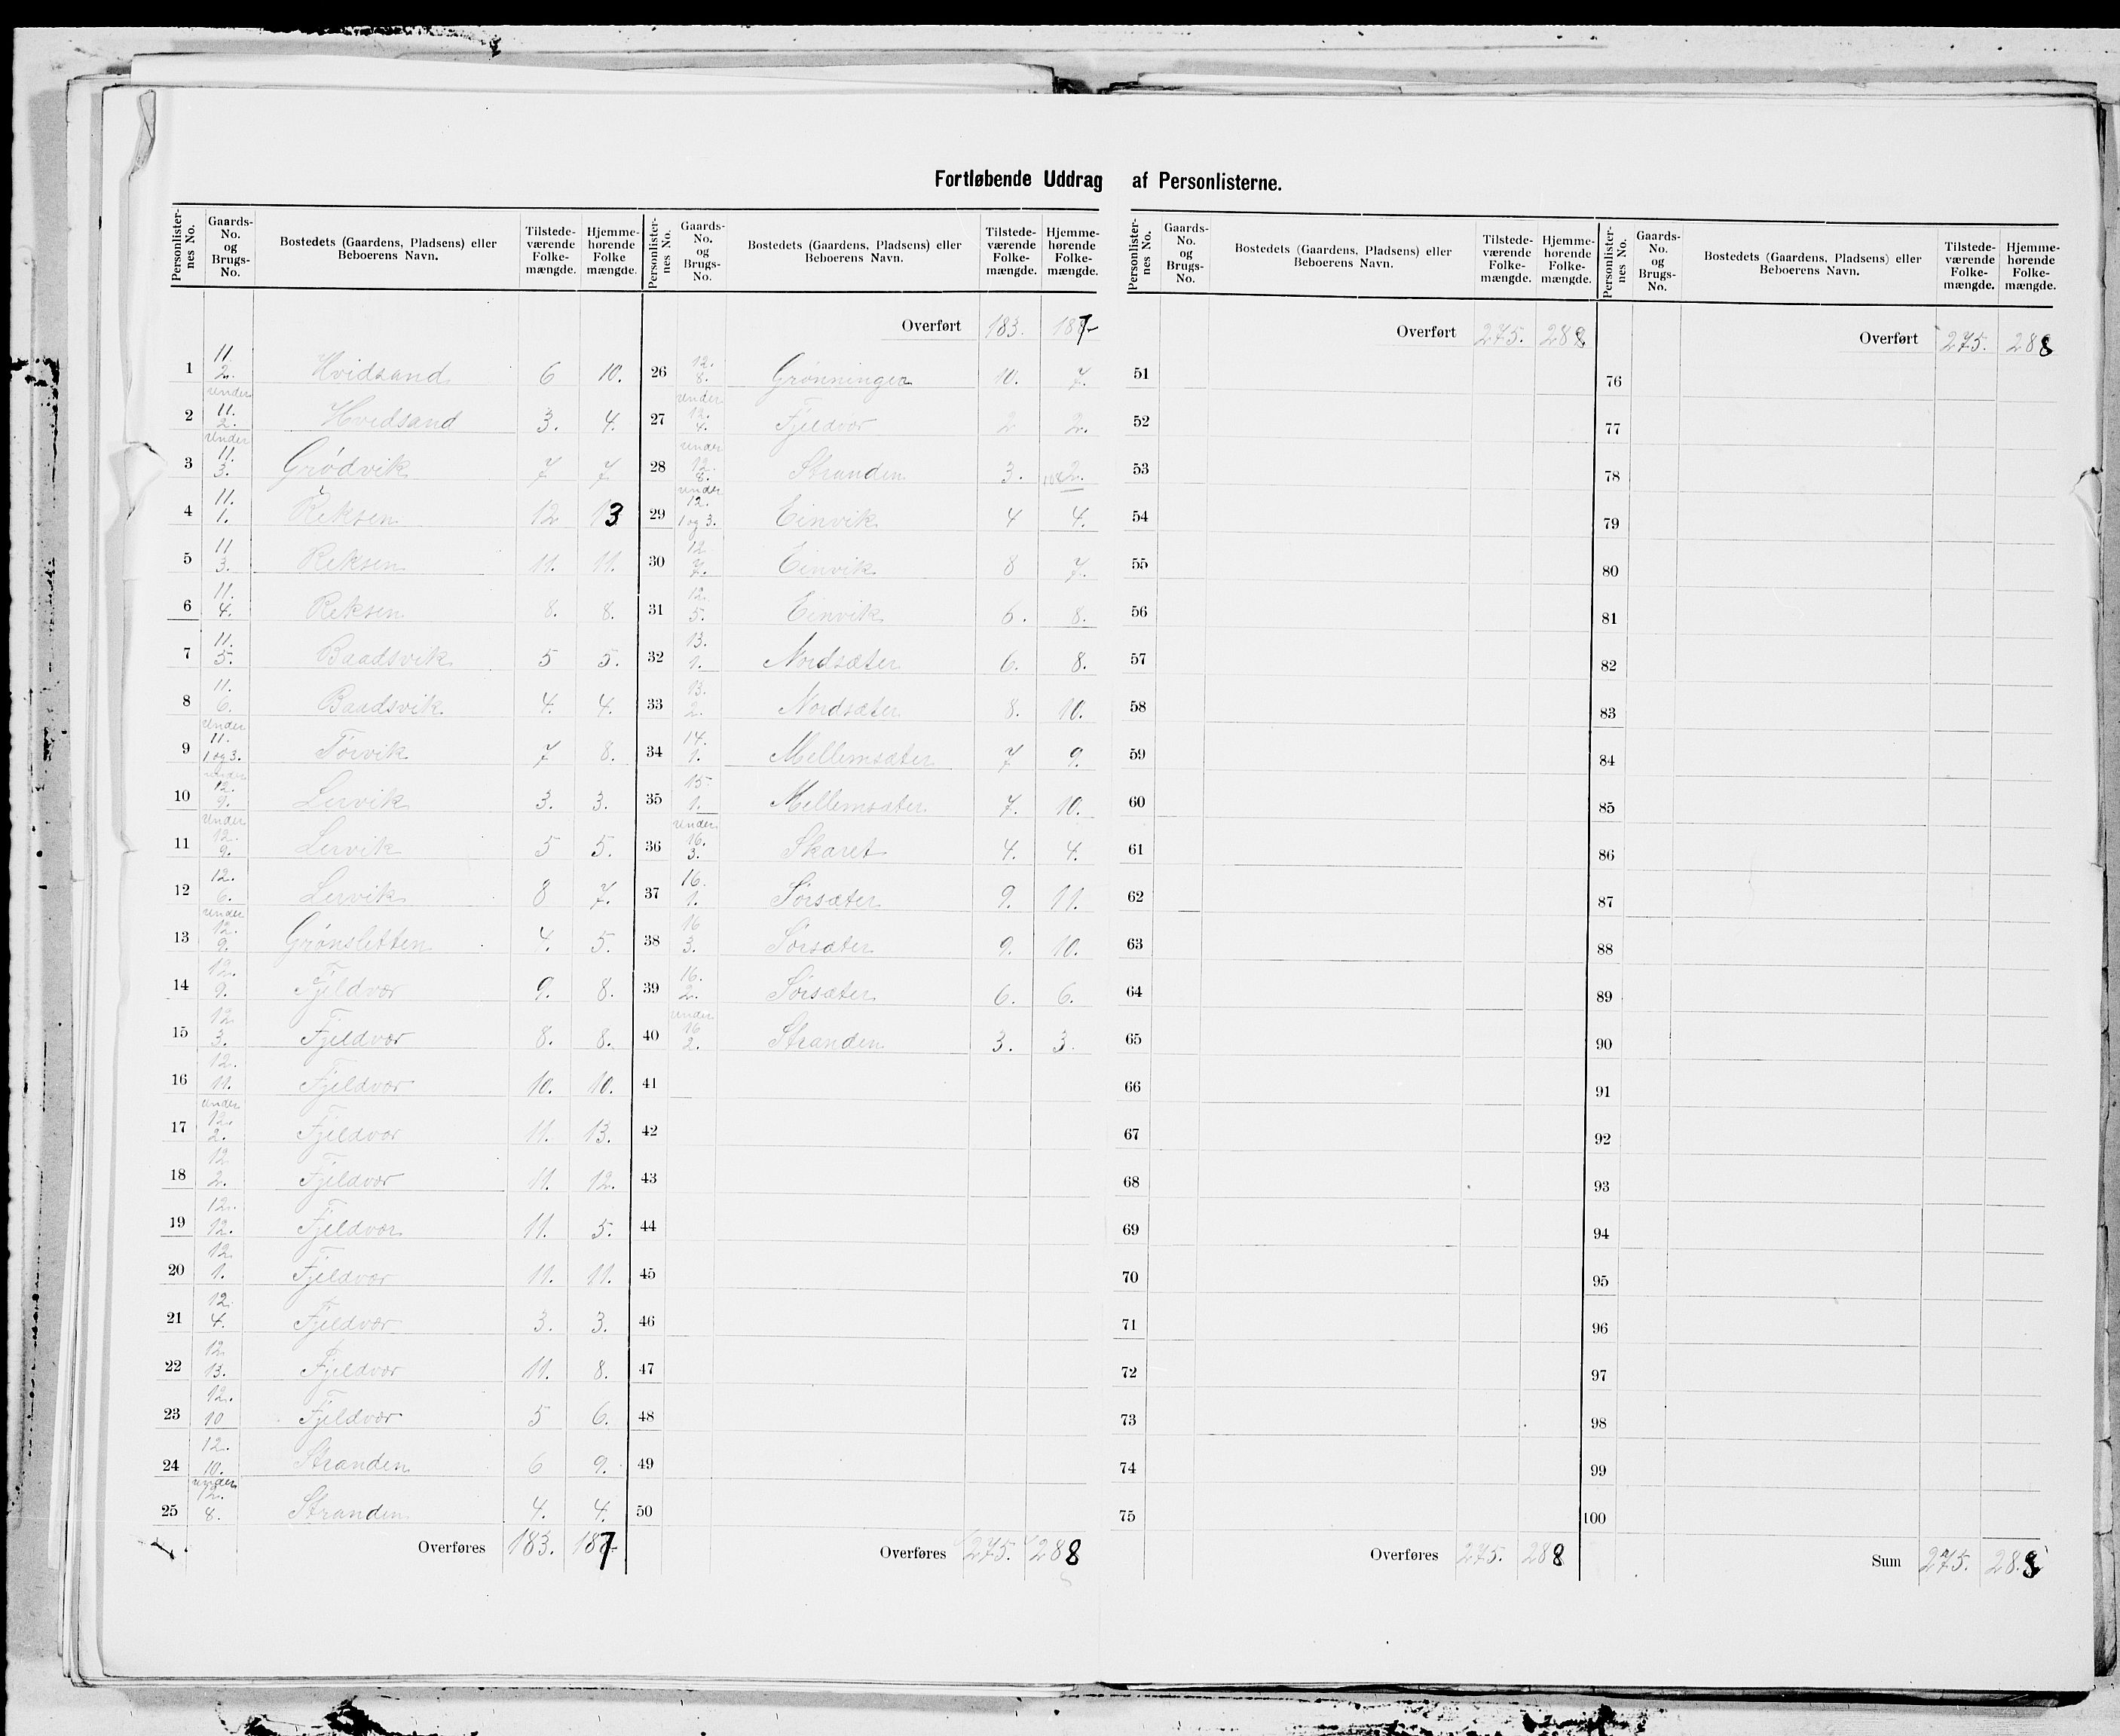 Fortløbende Uddrag af Personlisterne.
Personlisternes No. | Gaards-No. og Brugs-No. | Bostedets (Gaardens, Pladsens) eller Beboerens Navn. | Tilstedeværende Folkemængde. | Hjemmehørende Folkemængde.
1 | 11 2. | Hvidsand | 6 | 10.
2 | under 11. 2. | Hvidsand | 3. | 4.
3 | under 11. 3. | Grødvik | 7 | 7.
4 | 11. 1. | Reksen | 12 | 13
5 | 11 3. | Reksen | 11. | 11.
6 | 11. 4. | Reksen | 8. | 8.
7 | 11. 5. | Baadsvik | 5 | 5.
8 | 11. 6. | Baadsvik | 4. | 4.
9 | under 11. 1 og 3. | Torvik | 7 | 8.
10 | under 12. 9. | Lervik | 3. | 3.
11 | under 12. 9. | Lervik | 5 | 5.
12 | 12. 6. | Lervik | 8 | 7.
13 | under 12. 9. | Grønsletten | 4. | 5.
14 | 12. 9. | Fjeldvær | 9. | 8.
15 | 12 3. | Fjeldvær | 8. | 8.
16 | 12. 11. | Fjeldvær | 10. | 10.
17 | under 12. 2. | Fjeldvær | 11. | 13.
18 | 12 2. | Fjeldvær | 11. | 12.
19 | 12. 12. | Fjeldvær | 11. | 5.
20 | 12 1. | Fjeldvær | 11. | 11.
21 | 12. 4. | Fjeldvær | 3. | 3.
22 | 12 13. | Fjeldvær | 11. | 8.
23 | 12. 10 | Fjeldvær | 5 | 6.
24 | 12. 10. | Stranden | 6 | 9.
25 | under 12. 8. | Stranden | 4. | 4.
Overføres | 183. | 187
Personlisternes No. | Gaards-No. og Brugs-No. | Bostedets (Gaardens, Pladsens) eller Beboerens Navn. | Tilstedeværende Folkemængde. | Hjemmehørende Folkemængde.
Overført | 183. | 187
26 | 12. 8. | Grønningen | 10. | 7.
27 | under 12. 4. | Fjeldvær | 2 | 2.
28 | under 12. 8. | Stranden | 3. | 2.
29 | under 12. 1 og 3. | Einvik | 4 | 4.
30 | 12 7. | Einvik | 8 | 7.
31 | 12. 5. | Einvik | 6. | 8.
32 | 13. 1. | Nordsæter | 6. | 8.
33 | 13. 2. | Nordsæter | 8. | 10.
34 | 14. 1. | Mellemsæter | 7 | 9.
35 | 15 1. | Mellemsæter | 7. | 10.
36 | under 16. 3. | Skaret | 4. | 4.
37 | 16. 1. | Sørsæter | 9. | 11.
38 | 16 3. | Sørsæter | 9. | 10.
39 | 16. 2. | Sørsæter | 6. | 6.
40 | under 16 2. | Stranden | 3. | 3.
41
42
43
44
45
46
47
48
49
50
Overføres | 275. | 288
Personlisternes No. | Gaards-No. og Brugs-No. | Bostedets (Gaardens, Pladsens) eller Beboerens Navn. | Tilstedeværende Folkemængde. | Hjemmehørende Folkemængde.
Overført | 275. | 288
51
52
53
54
55
56
57
58
59
60
61
62
63
64
65
66
67
68
69
70
71
72
73
74
75
Overføres | 275. | 288
Personlisternes No. | Gaards-No. og Brugs-No. | Bostedets (Gaardens, Pladsens) eller Beboerens Navn. | Tilstedeværende Folkemængde. | Hjemmehørende Folkemængde.
Overført | 275. | 288
76
77
78
79
80
81
82
83
84
85
86
87
88
89
90
91
92
93
94
95
96
97
98
99
100
Sum | 275. | 288